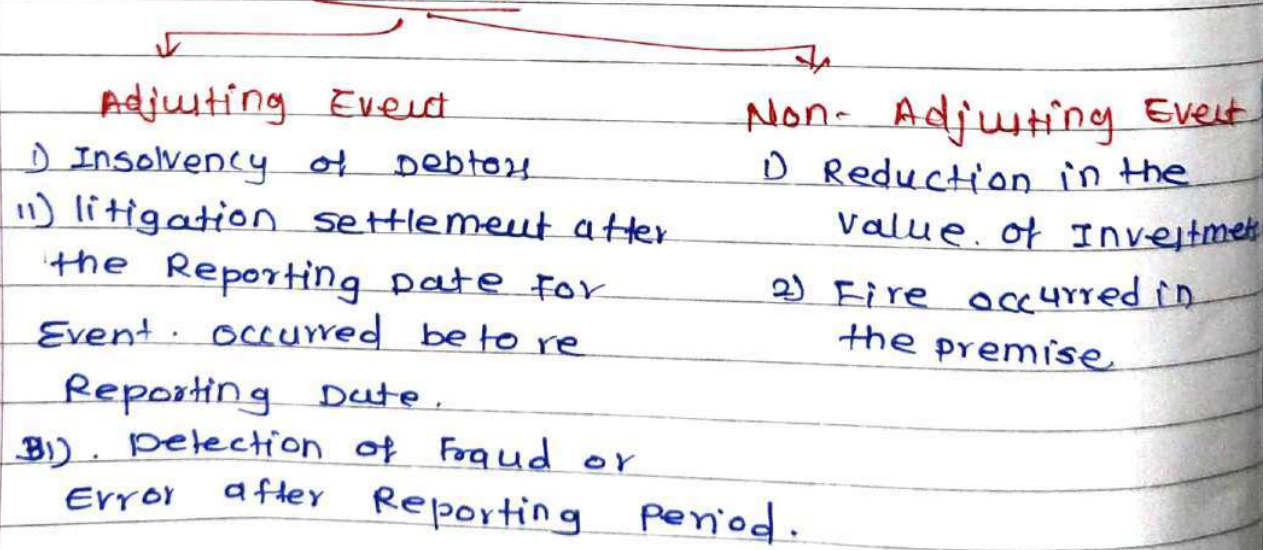 Adjusting Event
i) Insolvency of Debtors
ii) litigation settlement after
the Reporting Date For
Event. occurred before
Reporting Date.
Detection of Fraud or
Error after Reporting Period.
Non- Adjusting Event
1) Reduction in the
value. of Investment
2) Fire occurred in
the premise.